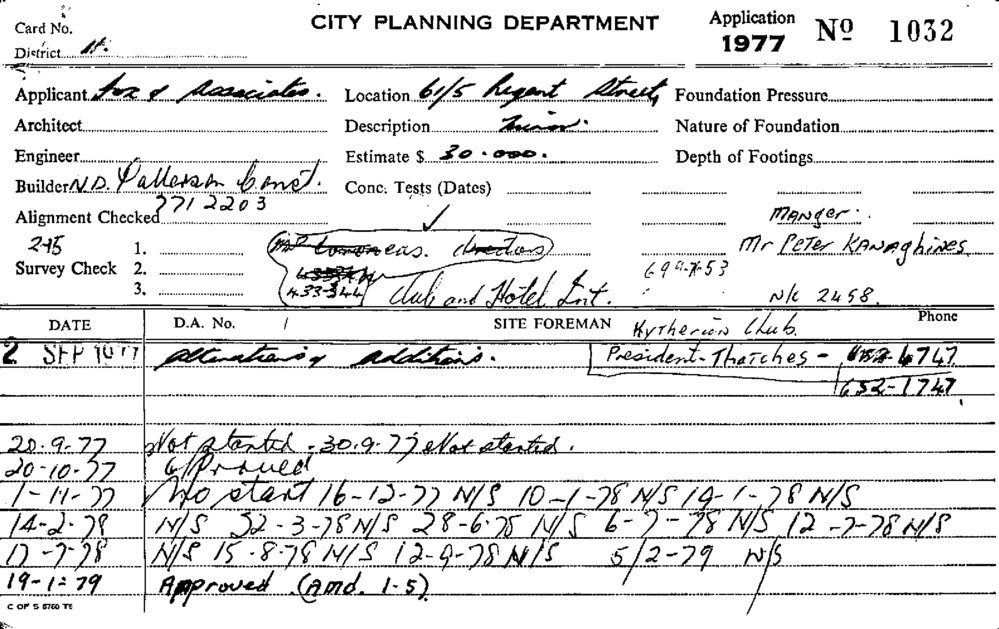 Card No.
CITY PLANNING DEPARTMENT
Application
1977 No 1032
District H.
Applicant Fox & Associates. Location 61/5 Regent Street, Foundation Pressure
Architect Description Minor. Nature of Foundation
Engineer Estimate $ 30.000. Depth of Footings
Builder N.D. Patterson Const. Conc. Tests (Dates)
771 2203
Alignment Checked
Manger.
245 1. Mr Peter Kanaghines
Survey Check 2. 699-7-53
3. 433-344 Club and Hotel Int. N/C 2458.
DATE D.A. No. / SITE FOREMAN Kytherian Club. Phone
2 SEP 1977 Alterations & additions. President-Thatches - 4747
652-1747
20.9.77 Not started - 30.9.77 Not started.
20-10-77 Approved
1-11-77 No start 16-12-77 N/S 10-1-78 N/S 19-1-78 N/S
14-2-78 N/S 22-3-78 N/S 28-6-78 N/S 6-7-78 N/S 12-7-78 N/S
17-7-78 N/S 15-8-78 N/S 12-9-78 N/S 5/2-79 N/S
19-1-79 Approved (Amd. 1-5).
C OF S 8760 TE